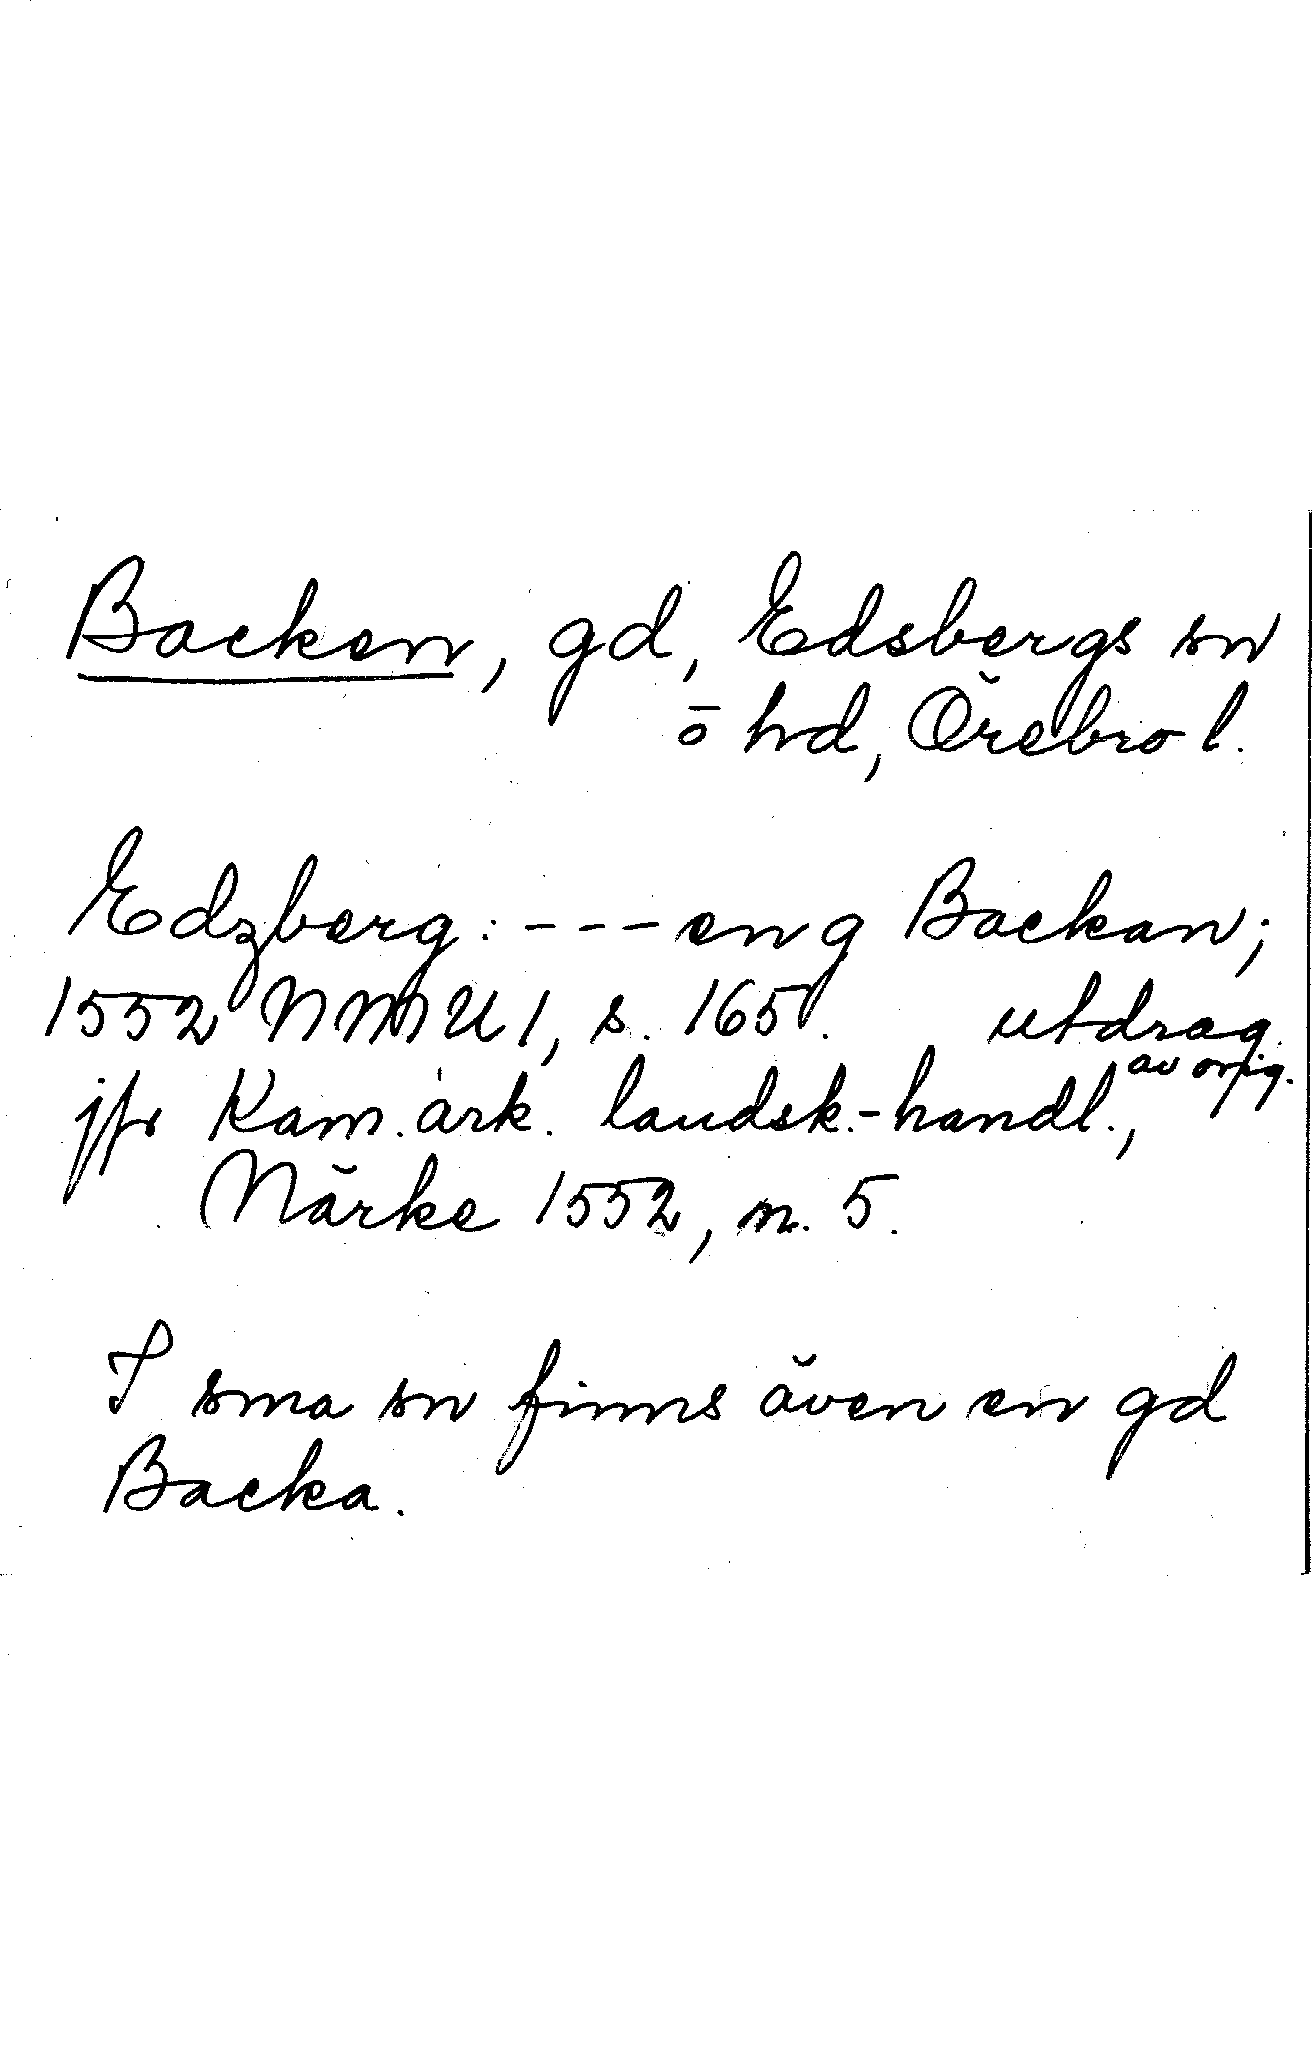 Backen, gd, Edsbergs sn
o hd, Örebro l.
Edzberg: --- eng Backan;
1552 NMU 1, s. 165. utdrag
av orig.
jfr Kam. ark. landsk.-handl.,
Närke 1552, n. 5.
I sma sn finns även en gd
Backa.